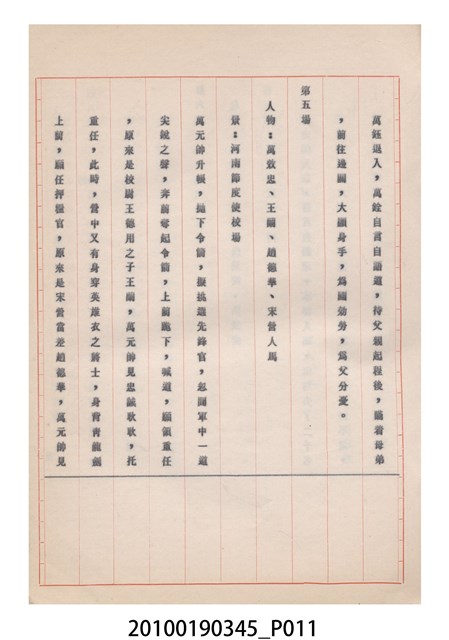 萬鈺退入，萬銓自言自語道，待父親起程後，瞞着母弟
，前往邊關，大顯身手，爲國効勞，爲父分憂。
第五場
人物：萬效忠、王關、趙德華、宋營人馬
景：河南節度使校場
萬元帥升帳，拋下令箭，擬挑選先鋒官，忽聞軍中一道
尖銳之聲，奔前奪起令箭，上前跪下，喊道，願領重任
，原來是校尉王德用之子王關，萬元帥見忠誠耿耿，托
重任，此時，營中又有身穿英雄衣之將士，身背青龍劍
上前，願任押糧官，原來是宋營當差趙德華，萬元帥見
20100190345_P011